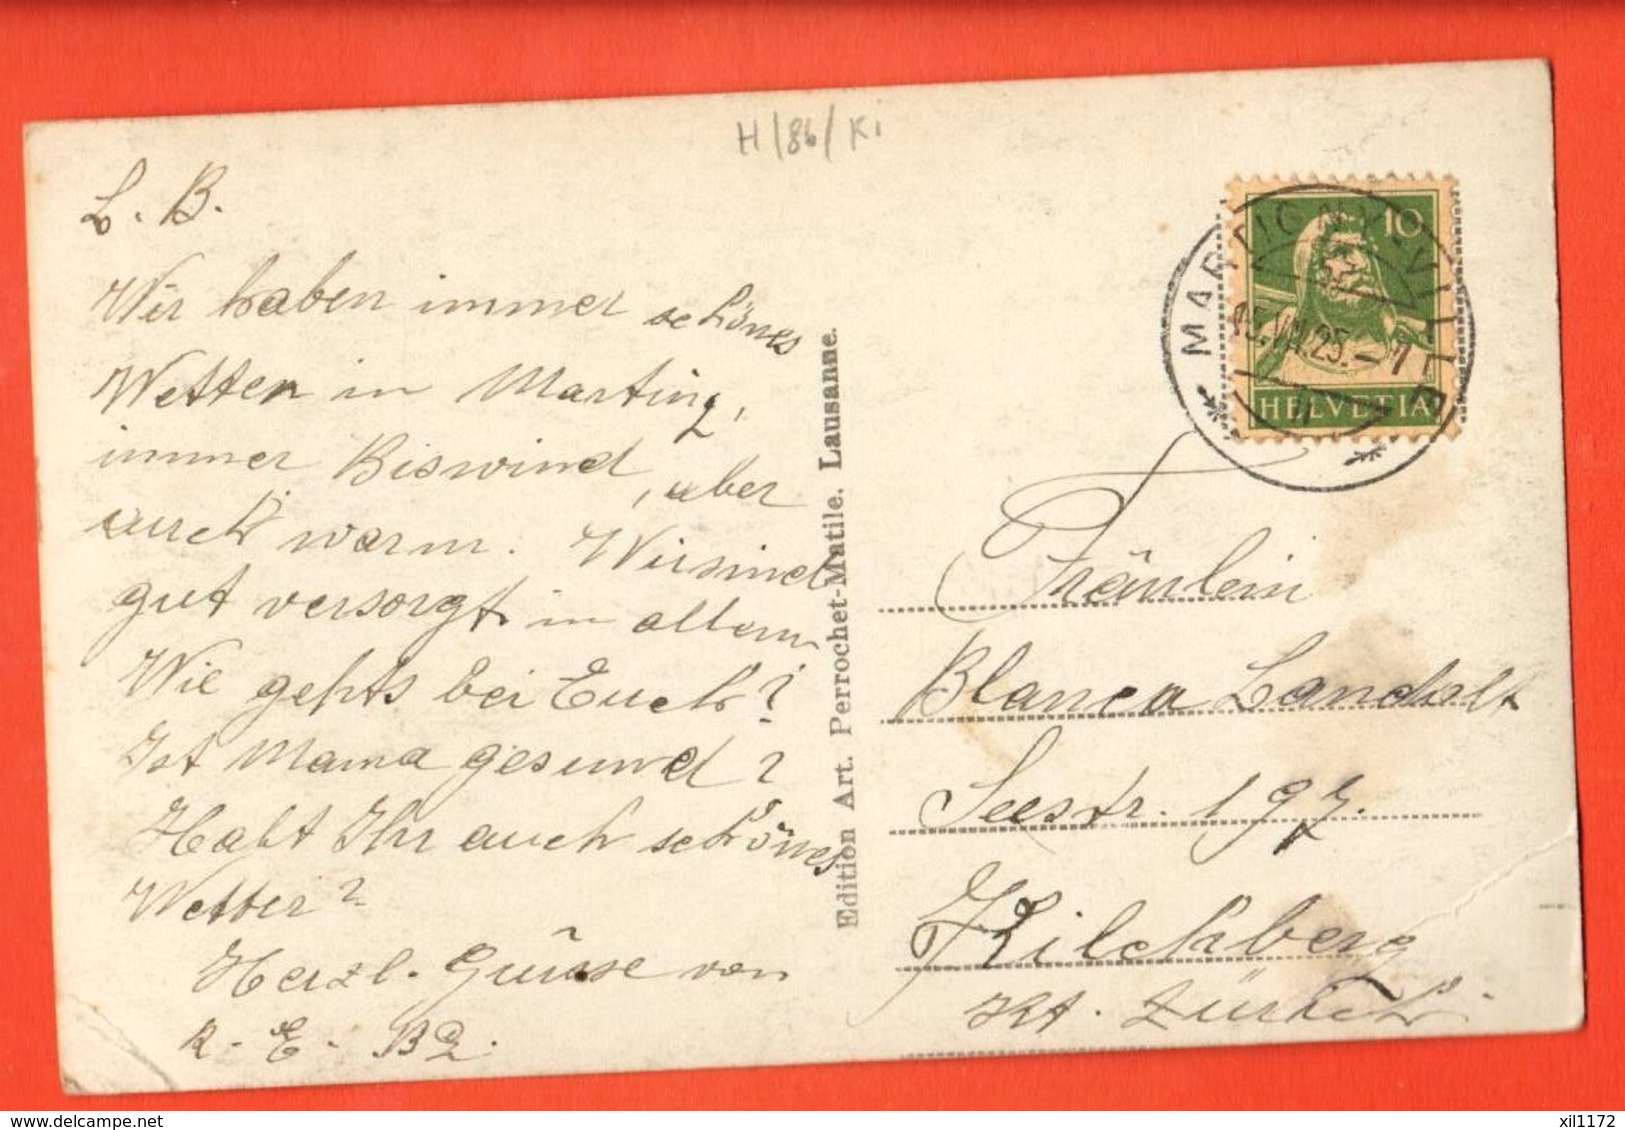 H/86/Ki
L. B.
Wir haben immer schönes
Wetter in Marting,
immer Biswind, aber
auch warm. Wir sind
gut versorgt in allem
Wie gehts bei Euch?
Ist Mama gesund?
Habt Ihr auch schönes
Wetter?
Herzl. Grüsse von
R. E. B
Edition Art. Perrochet-Matile. Lausanne.
10
HELVETIA
MARTIGNY-VILLE
15.VII.25.-7
Fräulein
Blanca Landolt
Seestr. 197.
Kilchberg
Kt. Zürich
delcampe.net
xil1172